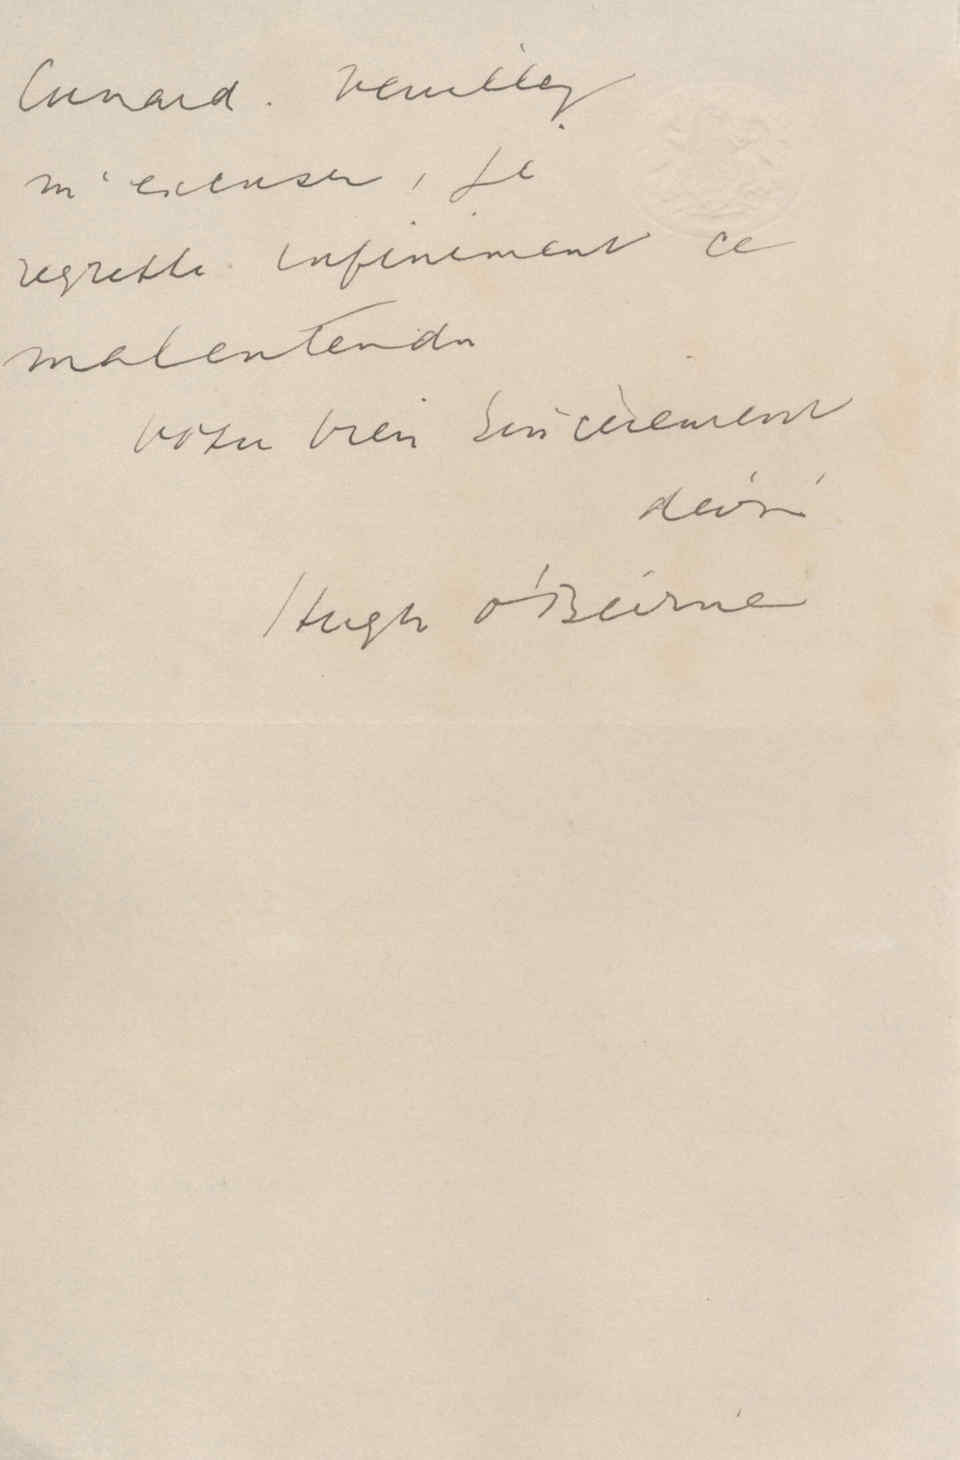 Cunard. Veuillez
m'excuser, je
regrette infiniment ce
malentendu
Votre bien sincèrement
dévoué
Hugh O'Beirne